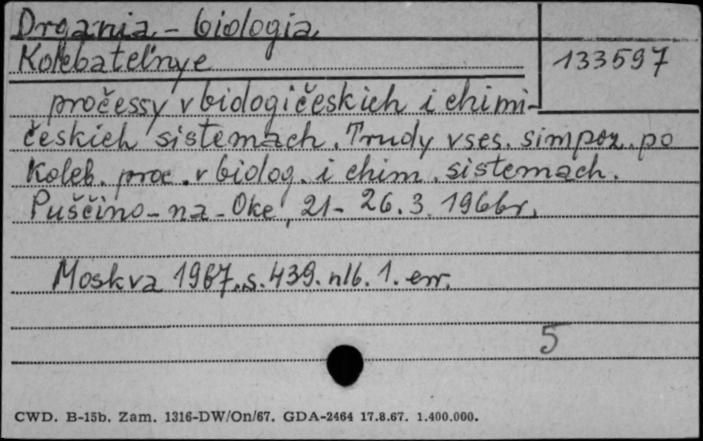 Drgania - biologia
Kolebatel'nye
133597
pročessy v biologičeskich i chimi-
českich sistemach. Trudy vses. simpoz. po
Koleb. proc. v biolog. i chim. sistemach.
Puščino-na-Oke, 21-26.3.1966r.
Moskva 1967. s. 439. nlb. 1. err.
5
CWD. B-15b. Zam. 1316-DW/On/67. GDA-2464 17.8.67. 1.400.000.